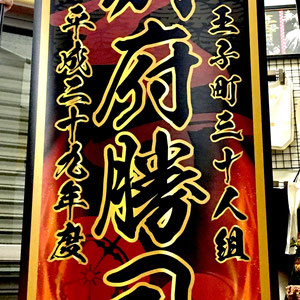 王子町三十人組
別府勝
平成二十九年度